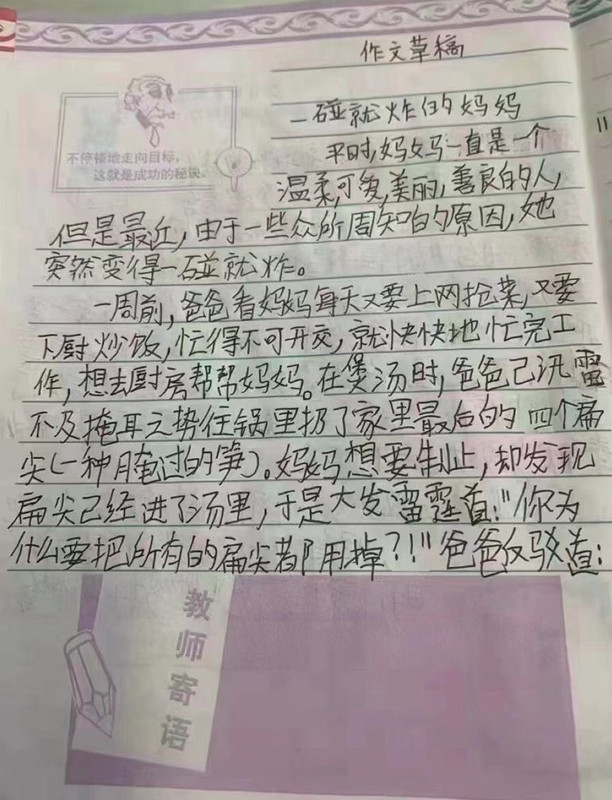 作文草稿
不停顿地走向目标，
这就是成功的秘诀。
一碰就炸的妈妈
平时，妈妈一直是一个
温柔可爱，美丽，善良的人，
但是最近，由于一些众所周知的原因，她
突然变得一碰就炸。
一周前，爸爸看妈妈每天又要上网抢菜，又要
下厨炒饭，忙得不可开交，就快快地忙完工
作，想去厨房帮帮妈妈。在煲汤时，爸爸已汛雷
不及掩耳之势往锅里扔了家里最后的四个扁
尖(一种腌过的笋)。妈妈想要制止，却发现
扁尖已经进了汤里，于是大发雷霆道："你为
什么要把所有的扁尖都用掉?!"爸爸反驳道：
教师寄语